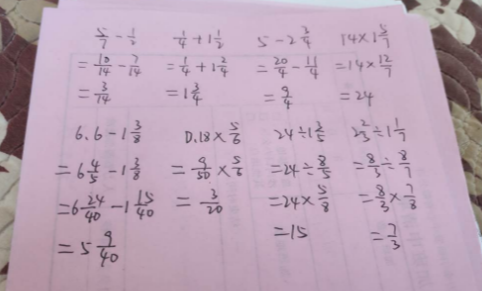 5/7 - 1/2    1/4 + 1 1/2    5 - 2 3/4    14 × 1 5/7
= 10/14 - 7/14    = 1/4 + 1 2/4    = 20/4 - 11/4    = 14 × 12/7
= 3/14    = 1 3/4    = 9/4    = 24
6.6 - 1 3/8    0.18 × 5/6    24 ÷ 1 3/5    2 2/3 ÷ 1 1/7
= 6 4/5 - 1 3/8    = 9/50 × 5/6    = 24 ÷ 8/5    = 8/3 ÷ 8/7
= 6 24/40 - 1 15/40    = 3/20    = 24 × 5/8    = 8/3 × 7/8
= 5 9/40    = 15    = 7/3